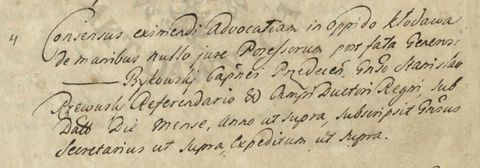 4 Consensus eximendi Advocatiam in oppido Kłodawa
de manibus nullo jure Possessorum post fata Generosi
Bykowski Capnei Przedecen, Gnso Stanislao
Rzewuski Referendario & Campi Ductori Regni, sub
Datt Die Mense, Anno ut supra, subscripsit Gnsus
Secretarius ut supra, Expeditum ut supra.